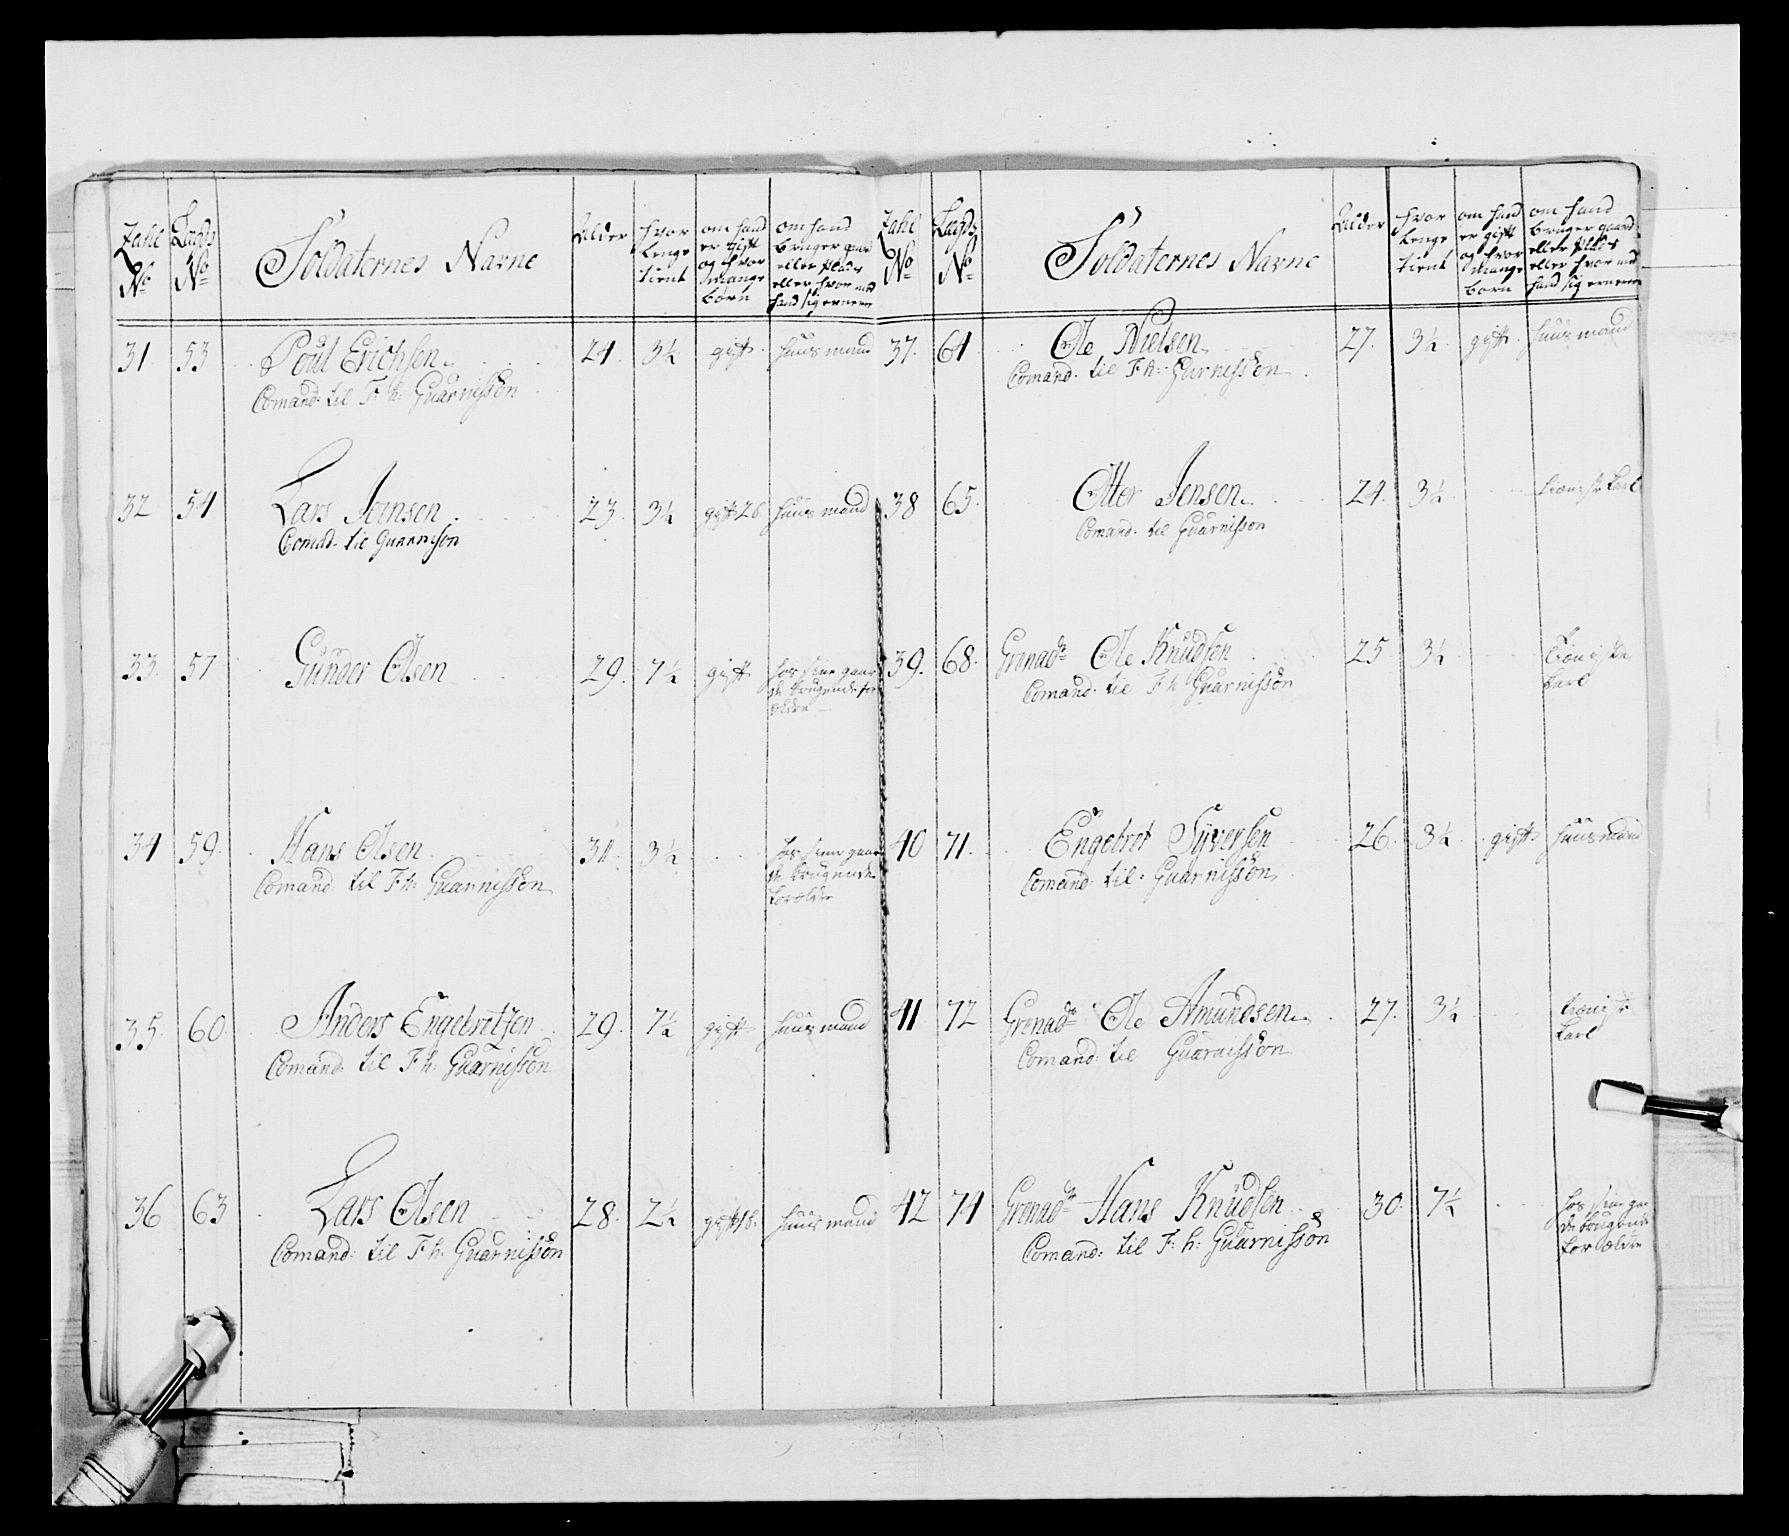 Zahl No
Lægds No
Soldaternes Navne
Alder
hvor lenge tient
om hand er gift og hvor mange børn
om hand bruger gaard eller pladz eller hvor med hand sig ernerer
31 53 Poul Erichsen 24 3½ gift huusmand
Comand: til F: h: Guarnisson
32 54 Lars Jensen 23 3½ gift 2b huusmand
Comād. til Guarnison
33 57 Gunder Olsen 29 7½ gift hos sine gaar
de brugende for
ældre
34 59 Hans Olsen 31 3½ hos sine gaar
de brugende
forældre
Comand: til F: h: Guarnisson
35 60 Anders Engebretsen 29 7½ gift huusmand
Comand: til F: h: Guarnisson
36 63 Lars Olsen 28 2½ gift 1b huusmand
Comand: til F: h: Guarnisson
Zahl No
Lægds No
Soldaternes Navne
Alder
hvor lenge tient
om hand er gift og hvor mange børn
om hand bruger gaard eller pladz eller hvor med hand sig ernerer
37 64 Ole Nielsen 27 3½ gift huusmand
Comand. til F: h: Gurnisson
38 65 Otter Jensen 24 3½ karl
Comand. til Guarnisson
39 68 Grenadr Ole Knudsen 25 3½
karl
Comand. til F h Guarnisson
40 71 Engebret Syversen 26 3½ gift huusmand
Comand: til Guarnisson
41 72 Grenadr Ole Amundsen 27 3½
karl
Comand: til Guarnisson
42 74 Grenadr Hans Knudsen 30 7½ hos sine ga
de brugende
forældre
Comand: til F: h: Guarnisson